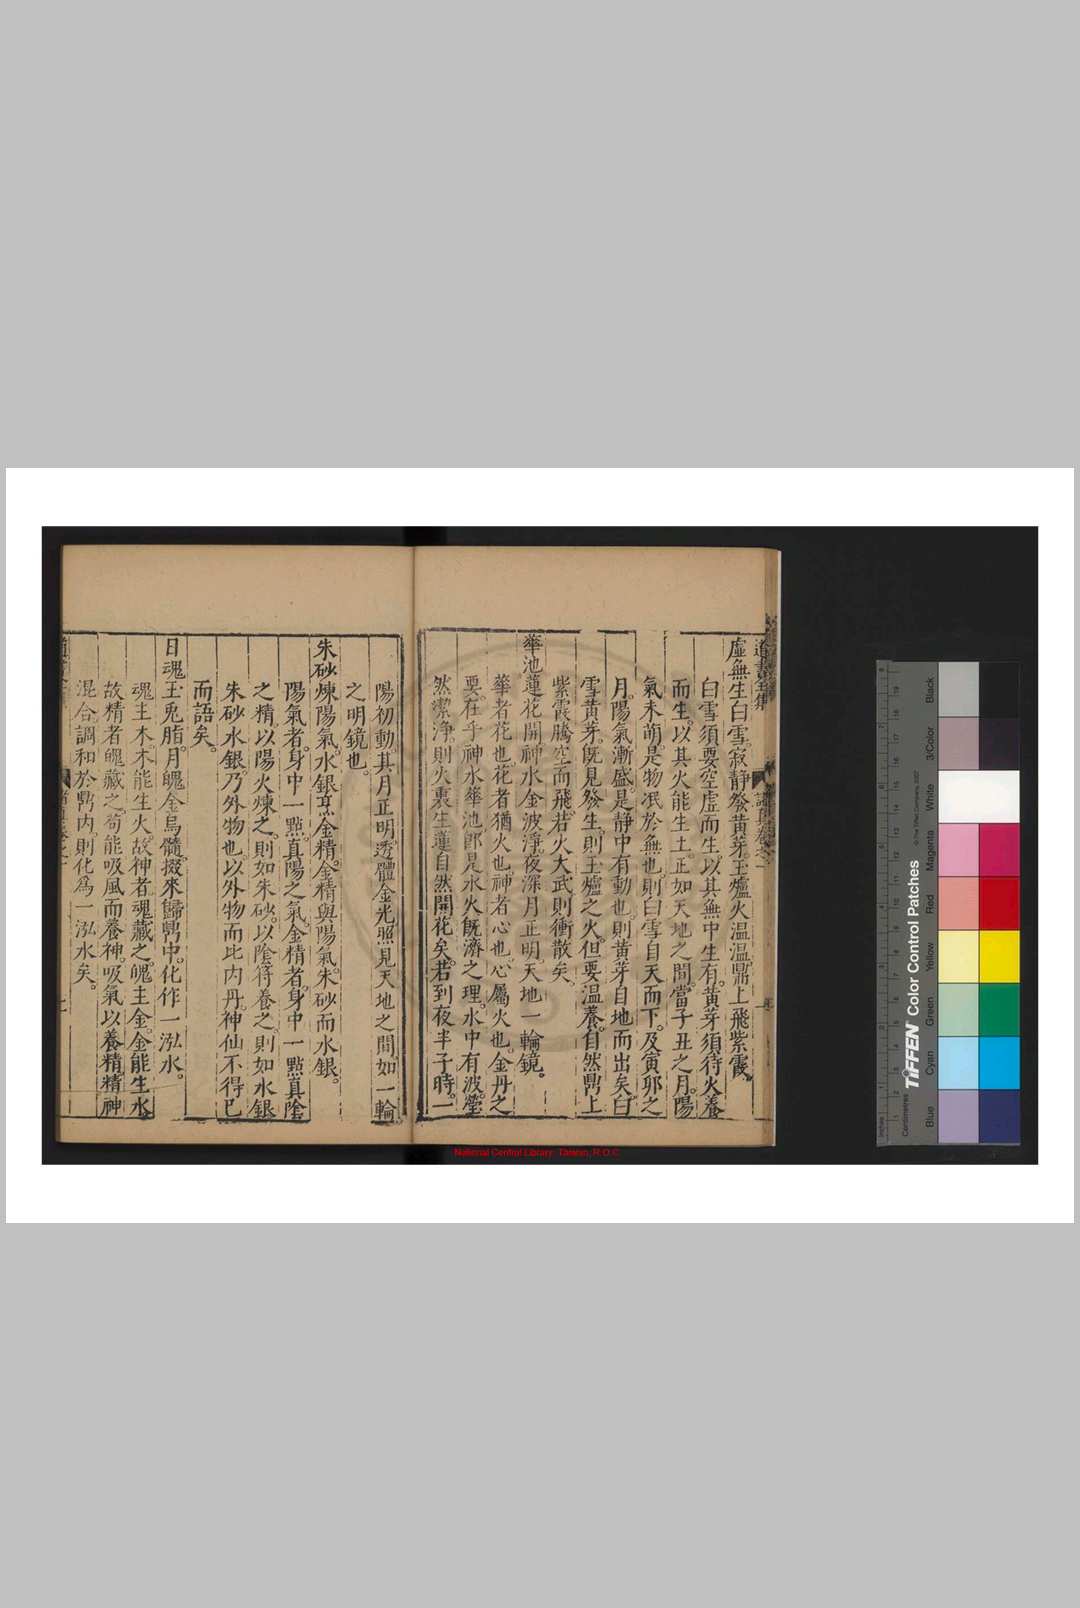 虛無生白雪。寂靜發黃芽。玉爐火温温。鼎上飛紫霞。
白雪須要空虛而生。以其無中生有。黃芽須待火養
而生。以其火能生土。正如天地之間。當子丑之月。陽
氣未萌。是物泯於無也。則白雪自天而下。及寅卯之
月。陽氣漸盛。是靜中有動也。則黃芽自地而出矣。白
雪黃芽。旣見發生。則玉爐之火。但要温養。自然鼎上
紫霞騰空而飛。若火大武則衝散矣。
華池蓮花開。神水金波淨。夜深月正明。天地一輪鏡。
華者花也。花者猶火也。神者心也。心屬火也。金丹之
要。在乎神水華池。卽是水火旣濟之理。水中有波。瑩
然潔淨。則火裏生蓮。自然開花矣。若到夜半子時。一
陽初動。其月正明。透體金光。照見天地之間。如一輪
之明鏡也。
朱砂煉陽氣。水銀烹金精。金精與陽氣。朱砂而水銀。
陽氣者。身中一點眞陽之氣。金精者。身中一點眞陰
之精。以陽火煉之。則如朱砂。以陰符養之。則如水銀
朱砂水銀。乃外物也。以外物而比内丹。神仙不得已
而語矣。
日魂玉兎脂。月魄金烏髓。掇來歸鼎中。化作一泓水。
魂主木。木能生火。故神者。魂藏之。魄主金。金能生水
故精者。魄藏之。苟能吸風而養神。吸氣以養精。精神
混合。調和於鼎内。則化爲一泓水矣。
道書全集
National Central Library, Taiwan, R.O.C
TIFFEN Color Control Patches
© The Tiffen Company, 2007
Inches
Centimetres
Blue
Cyan
Green
Yellow
Red
Magenta
White
3/Color
Black